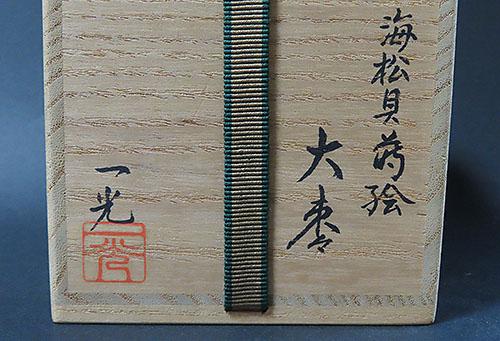 海松貝蒔絵
大棗
一光
一光